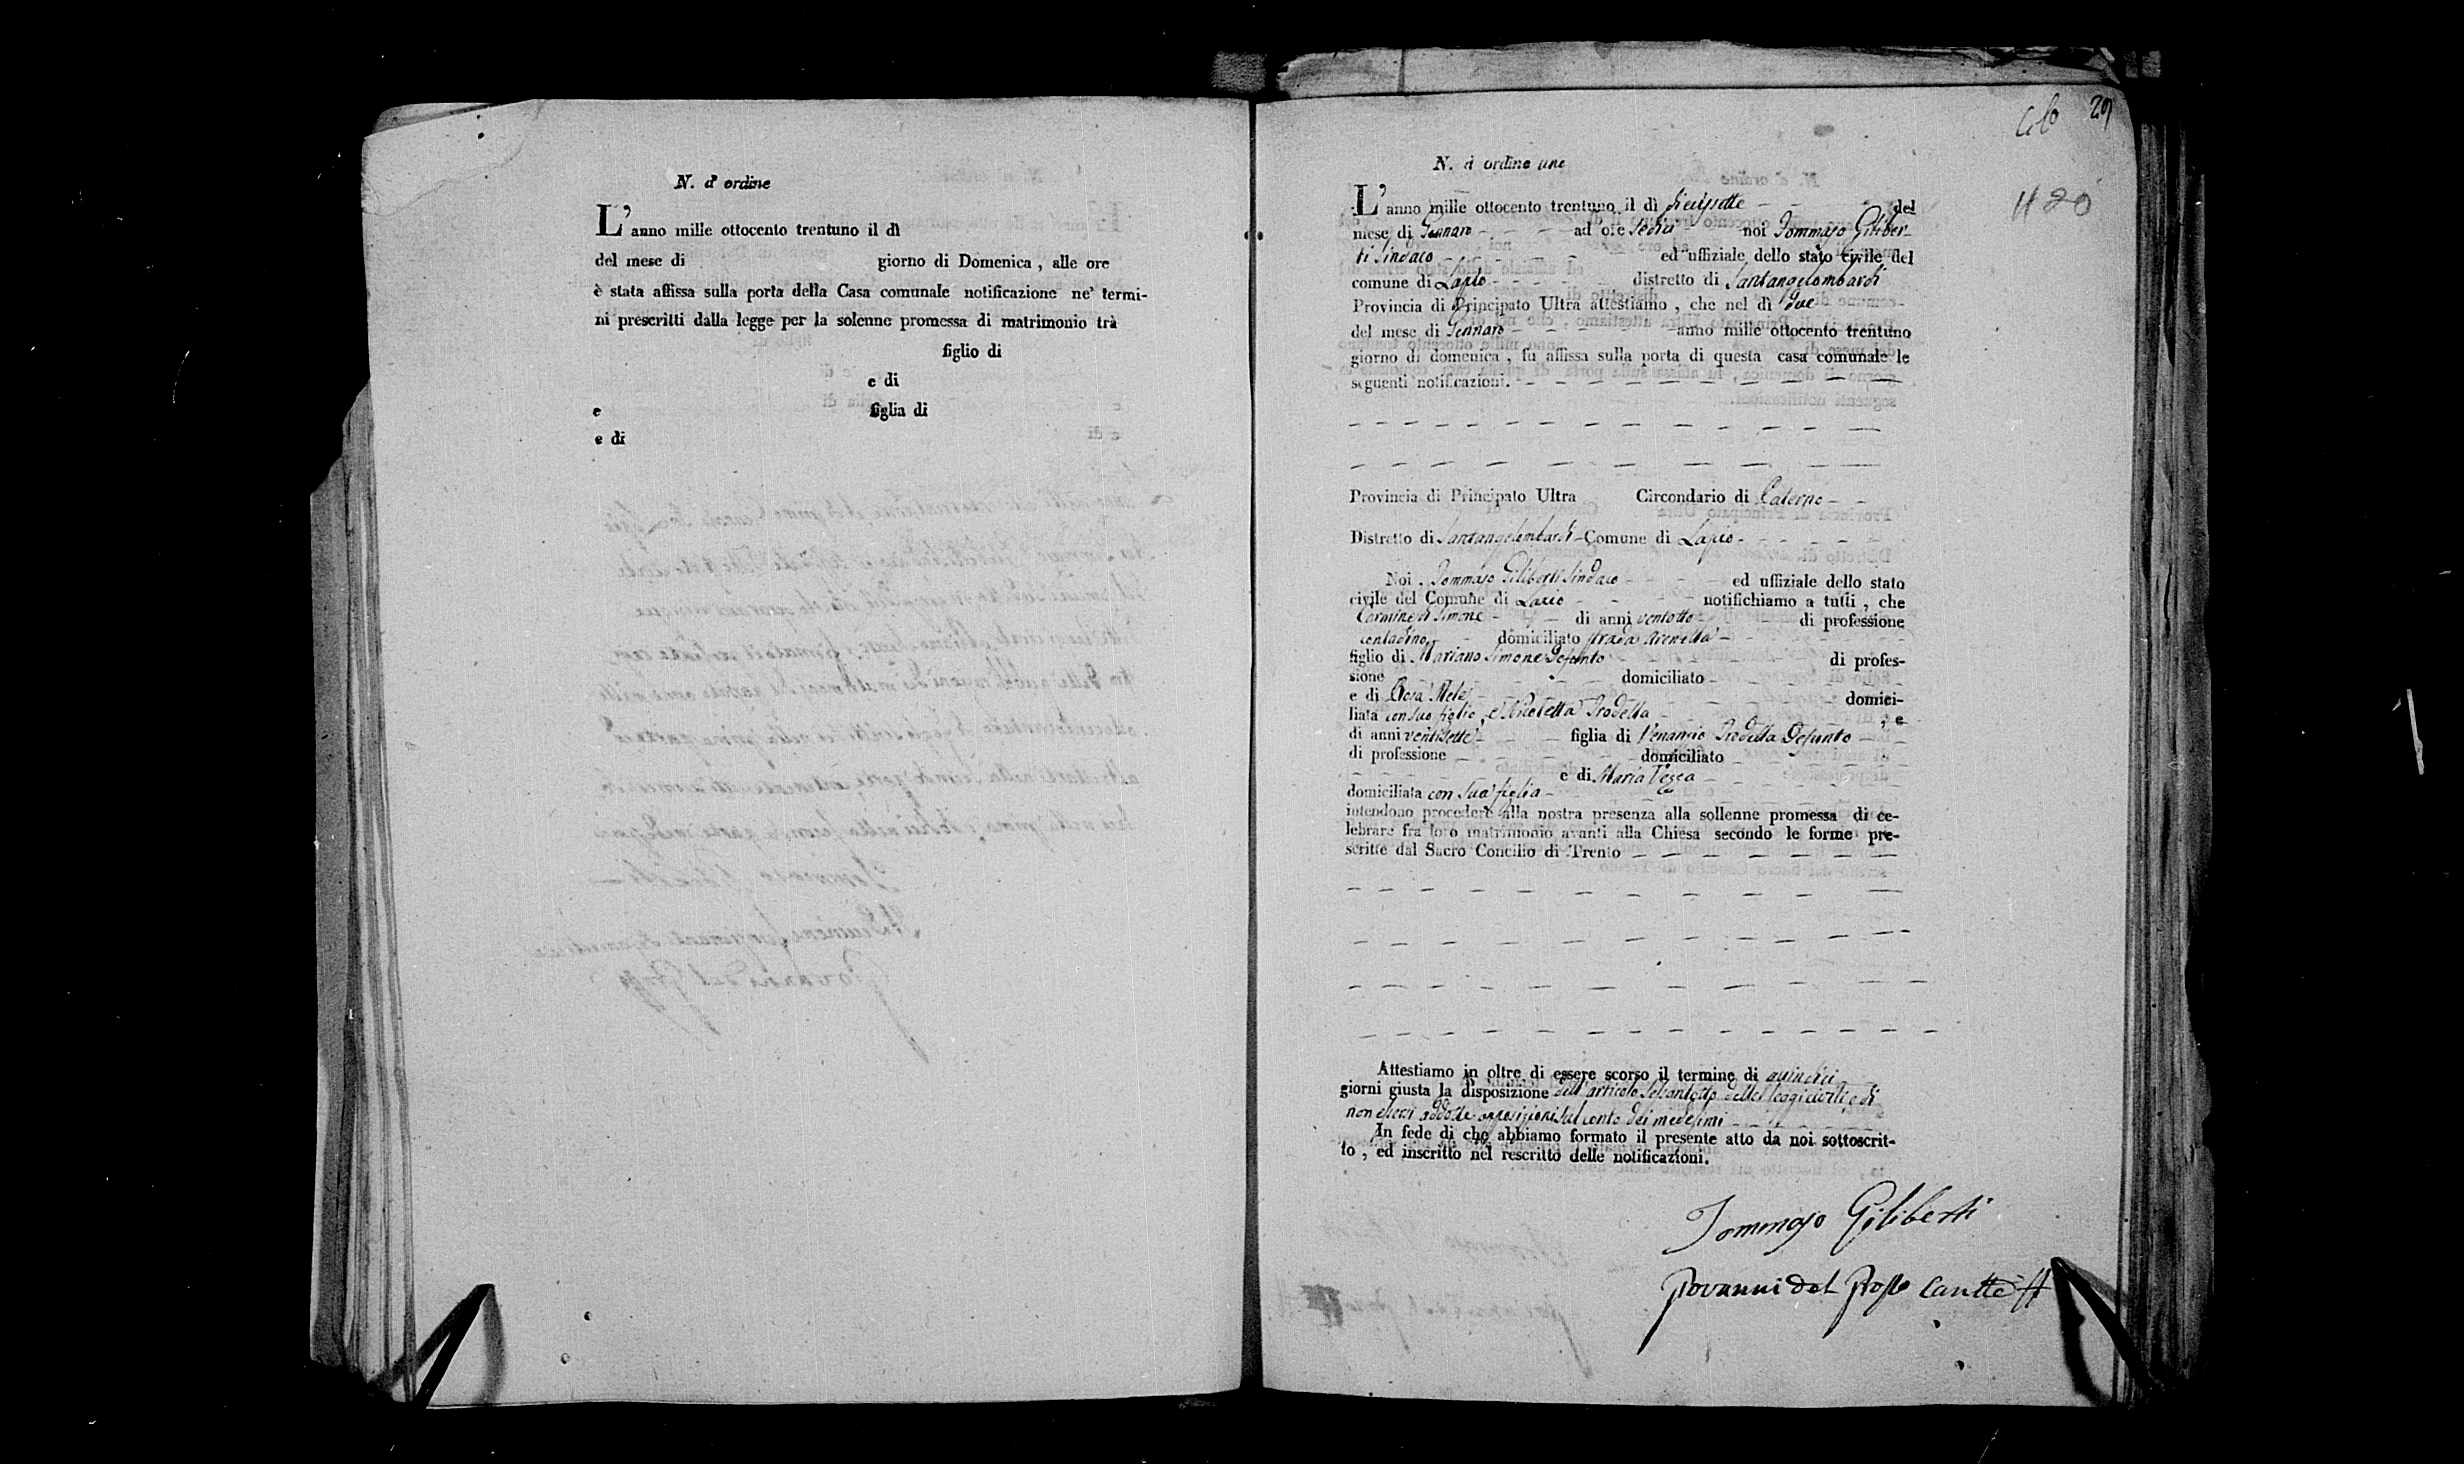 N. d' ordine
L' anno mille ottocento trentuno il dì
del mese di giorno di Domenica , alle ore
è stata affissa sulla porta della Casa comunale notificazione ne' termi-
ni prescritti dalla legge per la solenne promessa di matrimonio trà
figlio di
e di
e figlia di
e di
29
N. d' ordine uno
L' anno mille ottocento trentuno il dì dieciisette del
mese di Gennaro ad ore sedici noi Tommaso Giliber-
ti Sindaco ed uffiziale dello stato civile del
comune di Lapio distretto di Santangelombardi
Provincia di Principato Ultra attestiamo , che nel dì due
del mese di Gennaro anno mille ottocento trentuno
giorno di domenica , fu affissa sulla porta di questa casa comunale le
seguenti notificazioni.
Provincia di Principato Ultra Circondario di Paterno
Distretto di Santangelombardi Comune di Lapio
Noi Tommaso Giliberti Sindaco ed uffiziale dello stato
civile del Comune di Lapio notifichiamo a tutti , che
Carmine di Simone di anni ventotto di professione
contadino domiciliato strada Arenella
figlio di Mariano Simone Defunto di profes-
sione domiciliato
e di Rosa Mele domici-
liata con suo figlio , e Nicoletta Prodella , e
di anni ventisette figlia di Venanzio Prodella Defunto
di professione domiciliato
e di Maria
domiciliata con sua figlia
intendono procedere alla nostra presenza alla sollenne promessa di ce-
lebrare fra loro matrimonio avanti alla Chiesa secondo le forme pre-
scritte dal Sacro Concilio di Trento
Attestiamo in oltre di essere scorso il termine di quindici
giorni giusta la disposizione dell' articolo sessantotto delle leggi civili, e di
non essersi addotte opposizioni sul conto dei medesimi
In fede di che abbiamo formato il presente atto da noi sottoscrit-
to , ed inscritto nel rescritto delle notificazioni.
Tommaso Giliberti
Giovanni del Grosso